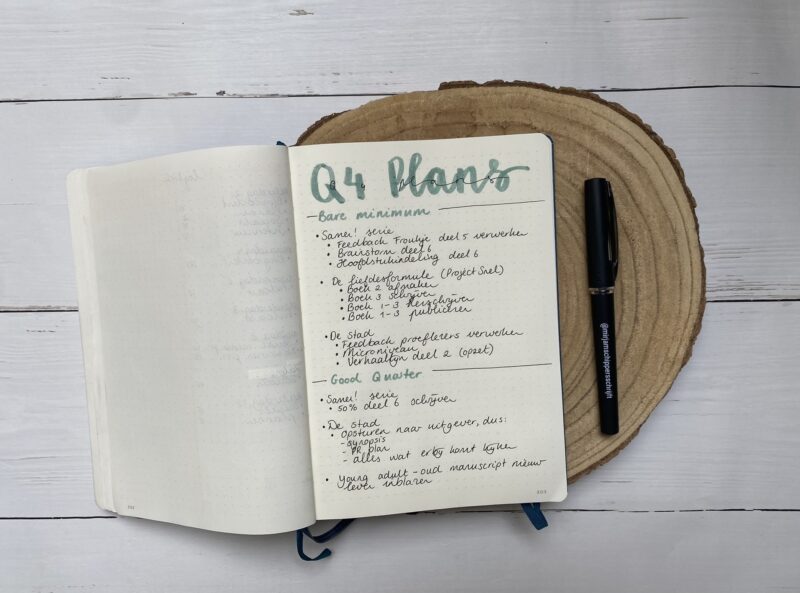 Q4 Plans
Bare minimum
• Samen! serie
• Feedback Froukje deel 5 verwerken
• Brainstorm deel 6
• Hoofdstukindeling deel 6
• De liefdesformule (Project Snel)
• Boek 2 afmaken
• Boek 3 schrijven
• Boek 1-3 herschrijven
• Boek 1-3 publiceren
• De Stad
• Feedback proeflezers verwerken
• Microniveau
• Verhaallijn deel 2 (opzet)
Good Quarter
• Samen! serie
• 50% deel 6 schrijven
• De Stad
• Opsturen naar uitgever, dus:
- synopsis
- PR plan
- alles wat erbij komt kijken
• Young adult - oud manuscript nieuw
leven inblazen
203
@mirjamschippersschrijft